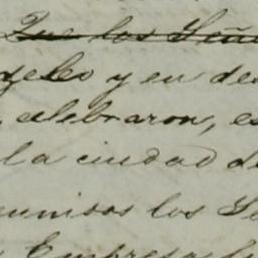 Que los Seño
y en de
celebraron, es
la ciudad de
reunidos los Se
Empresa